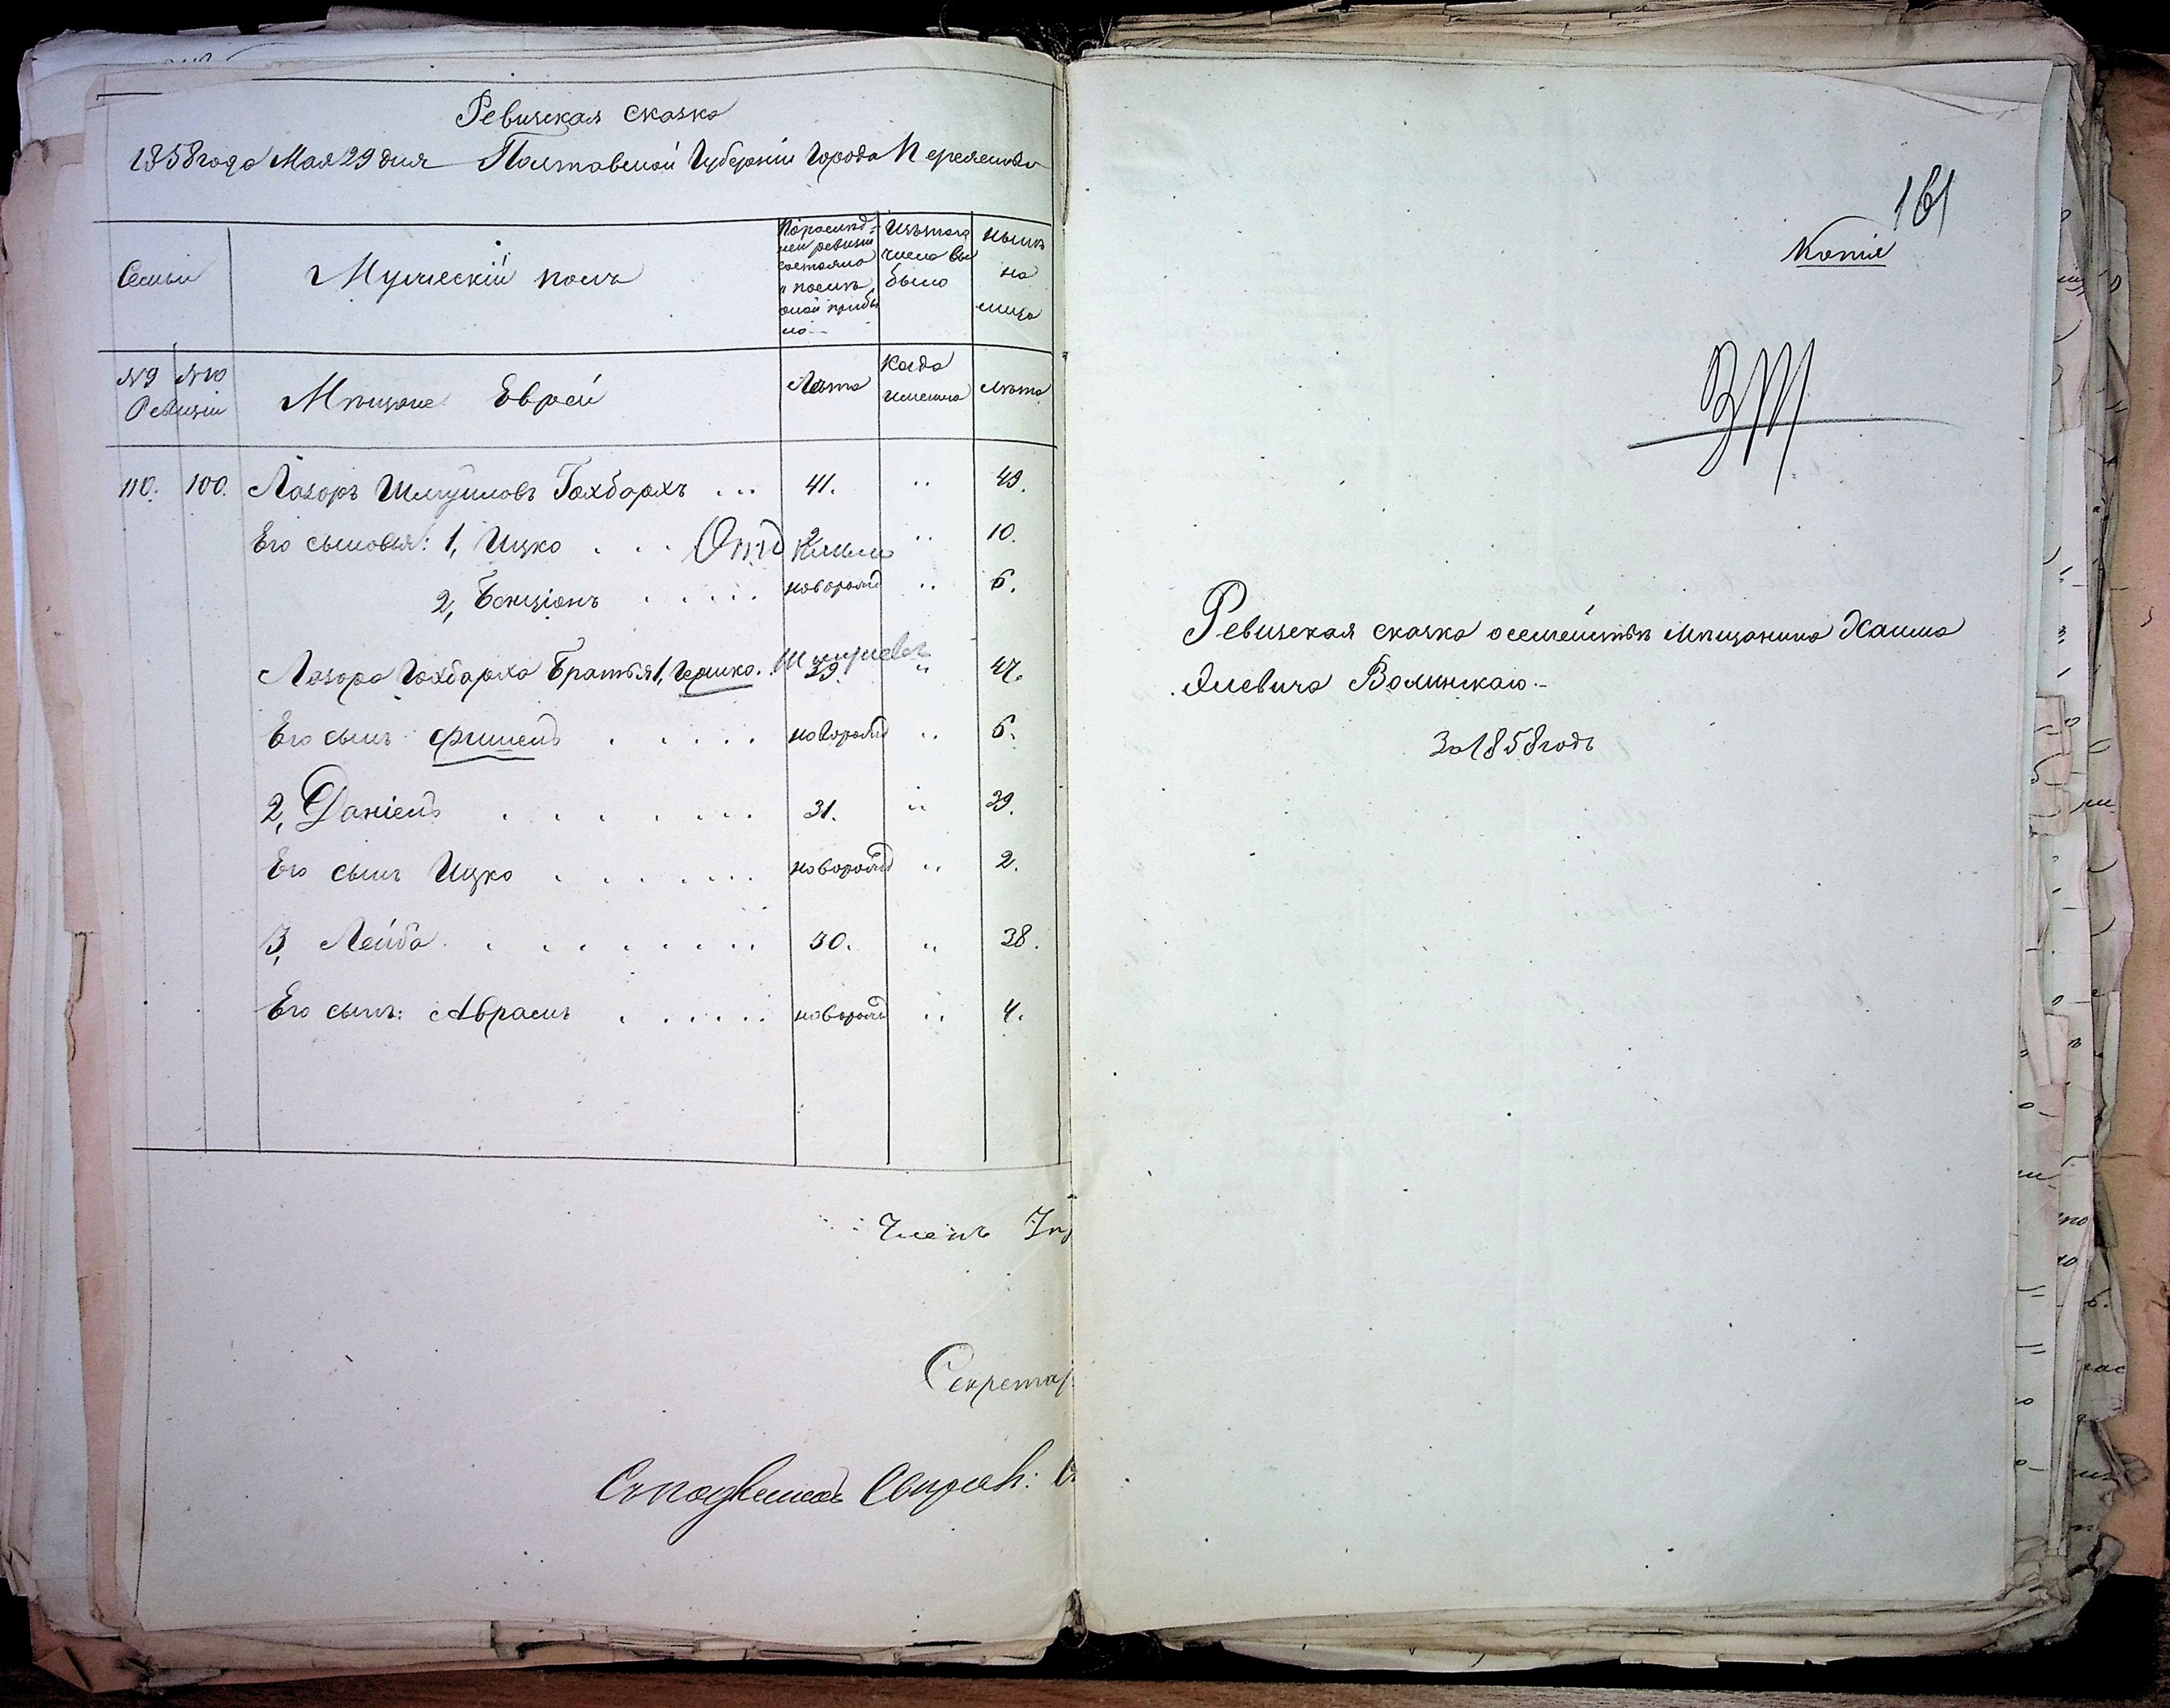 Ревизская сказка
1858 года Мая 29 дня Полтавской Губерніи Города Переяслава
Семьи
Мужескій полъ
По послѣд-
ней ревизіи
состояло
и послѣ
оной прибы
ло
Изъ того
числа вы
было
Нынѣ
на
лицо
№9 №10
Ревизіи
Мѣщане Евреи
Лѣта
Когда
именно
Лѣта
110. 100. Лазоръ Шмуйловъ Гохбархъ ... 41. " 49.
Его сыновья: 1, Ицко . . . 2 " 10.
2, Бенціонъ . . . . . новорожд " 6.
Лазора Гохбарха Братья 1, Гершко. 39 " 47.
Его сынъ Фишель . . . . . новорожд " 6.
2, Даніель . . . . . . . 31. " 39.
Его сынъ Ицко . . . . . . новорожд " 2.
3, Лейба . . . . . . . 30. " 38.
Его сынъ: Аврамъ . . . . . . новорожд " 4.
Членъ Упр
Секретар
Съ подлинною
161
Копія
Ревизская сказка о семействѣ мѣщанина Хаима
Волинскаго.-
За 1858 годъ